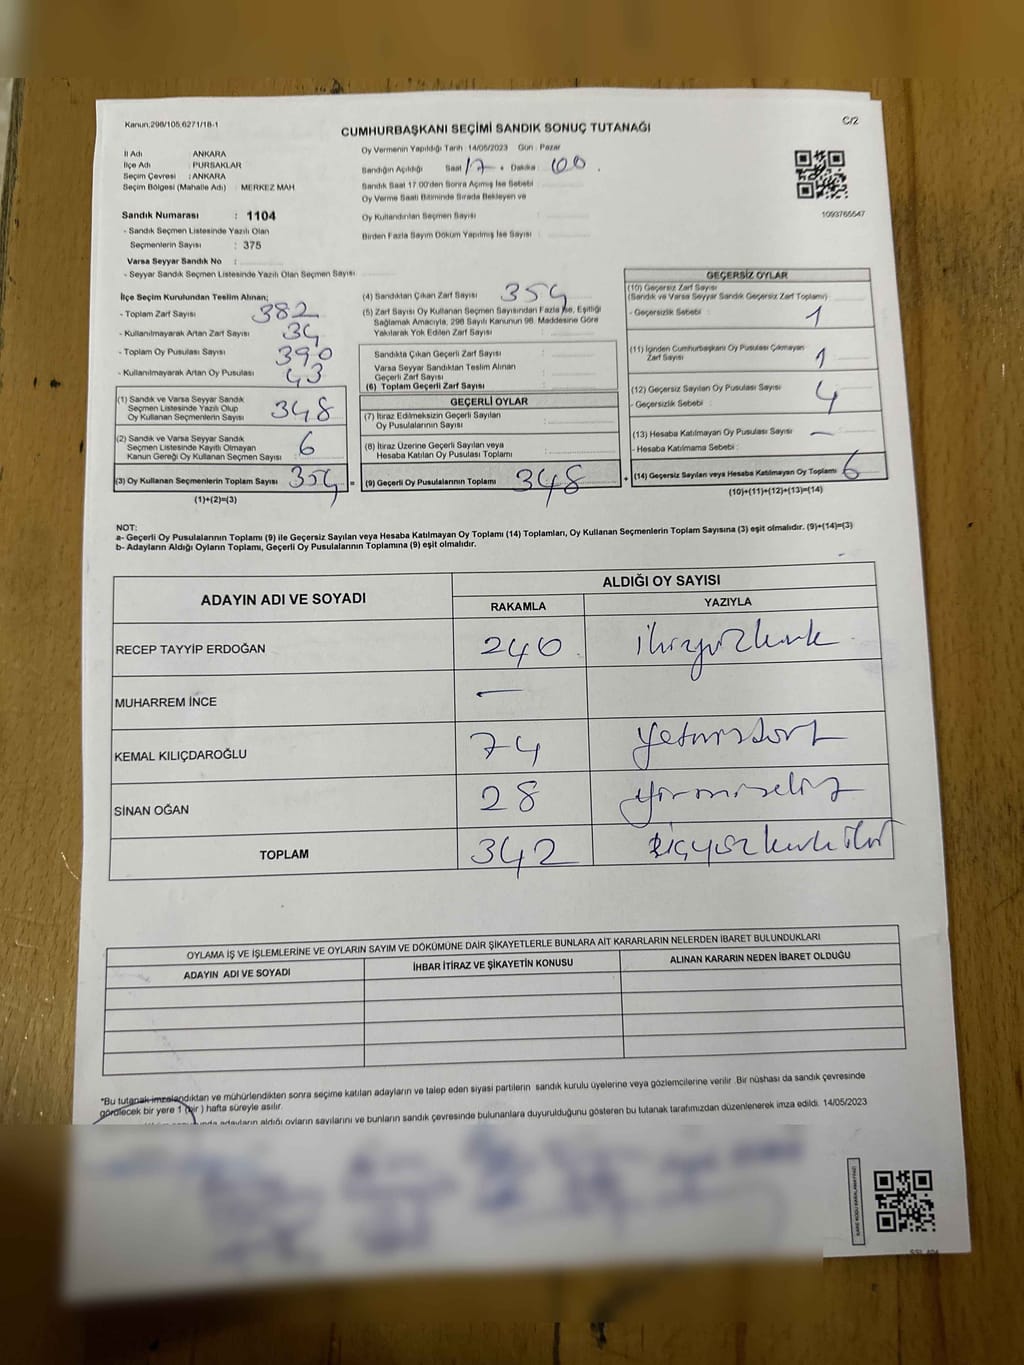 Kanun,298/105,6271/18-1
C/2
CUMHURBAŞKANI SEÇİMİ SANDIK SONUÇ TUTANAĞI
İl Adı : ANKARA
İlçe Adı : PURSAKLAR
Seçim Çevresi : ANKARA
Seçim Bölgesi (Mahalle Adı) : MERKEZ MAH
Oy Vermenin Yapıldığı Tarih : 14/05/2023 Gün : Pazar
Sandığın Açıldığı Saat 17 + Dakika : 00
Sandık Saat 17:00'den Sonra Açımış İse Sebebi :
Oy Verme Saati Bitiminde Sırada Bekleyen ve
Oy Kullandırılan Seçmen Sayısı :
Birden Fazla Sayım Döküm Yapılmış İse Sayısı :
1093765547
Sandık Numarası : 1104
- Sandık Seçmen Listesinde Yazılı Olan
Seçmenlerin Sayısı : 375
Varsa Seyyar Sandık No :
- Seyyar Sandık Seçmen Listesinde Yazılı Olan Seçmen Sayısı
İlçe Seçim Kurulundan Teslim Alınan;
- Toplam Zarf Sayısı : 382
- Kullanılmayarak Artan Zarf Sayısı : 34
- Toplam Oy Pusulası Sayısı : 390
- Kullanılmayarak Artan Oy Pusulası : 43
(1) Sandık ve Varsa Seyyar Sandık
Seçmen Listesinde Yazılı Olup
Oy Kullanan Seçmenlerin Sayısı : 348
(2) Sandık ve Varsa Seyyar Sandık
Seçmen Listesinde Kayıtlı Olmayan
Kanun Gereği Oy Kullanan Seçmen Sayısı : 6
(3) Oy Kullanan Seçmenlerin Toplam Sayısı : 354 =
(1)+(2)=(3)
(4) Sandıktan Çıkan Zarf Sayısı : 354
(5) Zarf Sayısı Oy Kullanan Seçmen Sayısından Fazla İse, Eşitliği
Sağlamak Amacıyla, 298 Sayılı Kanunun 98. Maddesine Göre
Yakılarak Yok Edilen Zarf Sayısı :
Sandıkta Çıkan Geçerli Zarf Sayısı :
Varsa Seyyar Sandıktan Teslim Alınan
Geçerli Zarf Sayısı :
(6) Toplam Geçerli Zarf Sayısı :
GEÇERLİ OYLAR
(7) İtiraz Edilmeksizin Geçerli Sayılan
Oy Pusulalarının Sayısı :
(8) İtiraz Üzerine Geçerli Sayılan veya
Hesaba Katılan Oy Pusulası Toplamı :
(9) Geçerli Oy Pusulalarının Toplamı : 348 +
GEÇERSİZ OYLAR
(10) Geçersiz Zarf Sayısı
(Sandık ve Varsa Seyyar Sandık Geçersiz Zarf Toplamı) :
- Geçersizlik Sebebi : 1
(11) İçinden Cumhurbaşkanı Oy Pusulası Çıkmayan
Zarf Sayısı : 1
(12) Geçersiz Sayılan Oy Pusulası Sayısı : 4
- Geçersizlik Sebebi :
(13) Hesaba Katılmayan Oy Pusulası Sayısı : —
- Hesaba Katılmama Sebebi :
(14) Geçersiz Sayılan veya Hesaba Katılmayan Oy Toplamı : 6
(10)+(11)+(12)+(13)=(14)
NOT:
a- Geçerli Oy Pusulalarının Toplamı (9) ile Geçersiz Sayılan veya Hesaba Katılmayan Oy Toplamı (14) Toplamları, Oy Kullanan Seçmenlerin Toplam Sayısına (3) eşit olmalıdır. (9)+(14)=(3)
b- Adayların Aldığı Oyların Toplamı, Geçerli Oy Pusulalarının Toplamına (9) eşit olmalıdır.
ADAYIN ADI VE SOYADI
ALDIĞI OY SAYISI
RAKAMLA YAZIYLA
RECEP TAYYİP ERDOĞAN 240 ikiyüzkırk
MUHARREM İNCE —
KEMAL KILIÇDAROĞLU 74 Yetmişdört
SİNAN OĞAN 28 yirmisekiz
TOPLAM 342 üçyüzkırkiki
OYLAMA İŞ VE İŞLEMLERİNE VE OYLARIN SAYIM VE DÖKÜMÜNE DAİR ŞİKAYETLERLE BUNLARA AİT KARARLARIN NELERDEN İBARET BULUNDUKLARI
ADAYIN ADI VE SOYADI İHBAR İTİRAZ VE ŞİKAYETİN KONUSU ALINAN KARARIN NEDEN İBARET OLDUĞU
*Bu tutanak imzalandıktan ve mühürlendikten sonra seçime katılan adayların ve talep eden siyasi partilerin sandık kurulu üyelerine veya gözlemcilerine verilir .Bir nüshası da sandık çevresinde
görülecek bir yere 1 (bir ) hafta süreyle asılır.
adayların aldığı oyların sayılarını ve bunların sandık çevresinde bulunanlara duyurulduğunu gösteren bu tutanak tarafımızdan düzenlenerek imza edildi. 14/05/2023